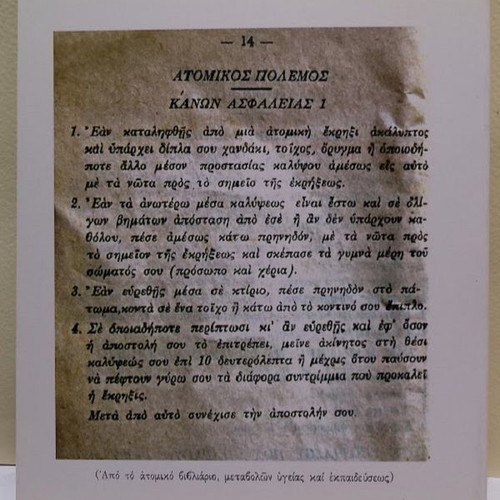 — 14 —
ΑΤΟΜΙΚΟΣ ΠΟΛΕΜΟΣ
ΚΑΝΩΝ ΑΣΦΑΛΕΙΑΣ 1
1. Ἐὰν καταληφθῆς ἀπὸ μιὰ ἀτομικὴ ἔκρηξι ἀκάλυπτος
καὶ ὑπάρχει δίπλα σου χανδάκι, τοῖχος, ὄρυγμα ἢ ὁποιοδή-
ποτε ἄλλο μέσον προστασίας καλύφου ἀμέσως εἰς αὐτὸ
μὲ τὰ νῶτα πρὸς τὸ σημεῖο τῆς ἐκρήξεως.
2. Ἐὰν τὰ ἀνωτέρω μέσα καλύψεως εἶναι ἔστω καὶ σὲ ὀλί-
γων βημάτων ἀπόσταση ἀπὸ ἐσὲ ἢ ἂν δὲν ὑπάρχουν κα-
θόλου, πέσε ἀμέσως κάτω πρηνηδόν, μὲ τὰ νῶτα πρὸς
τὸ σημεῖον τῆς ἐκρήξεως καὶ σκέπασε τὰ γυμνὰ μέρη τοῦ
σώματός σου (πρόσωπο καὶ χέρια).
3. Ἐὰν εὑρεθῆς μέσα σὲ κτίριο, πέσε πρηνηδὸν στὸ πά-
τωμα, κοντὰ σὲ ἕνα τοῖχο ἢ κάτω ἀπὸ τὸ κοντινό σου ἔπιπλο.
4. Σὲ ὁποιαδήποτε περίπτωσι κι' ἂν εὑρεθῆς καὶ ἐφ' ὅσον
ἡ ἀποστολή σου τὸ ἐπιτρέπει, μεῖνε ἀκίνητος στὴ θέσι
καλύψεώς σου ἐπὶ 10 δευτερόλεπτα ἢ μέχρις ὅτου παύσουν
νὰ πέφτουν γύρω σου τὰ διάφορα συντρίμμια ποὺ προκαλεῖ
ἡ ἔκρηξις.
Μετὰ ἀπὸ αὐτὸ συνέχισε τὴν ἀποστολήν σου.
(Ἀπὸ τὸ ἀτομικὸ βιβλιάριο, μεταβολῶν ὑγείας καὶ ἐκπαιδεύσεως)